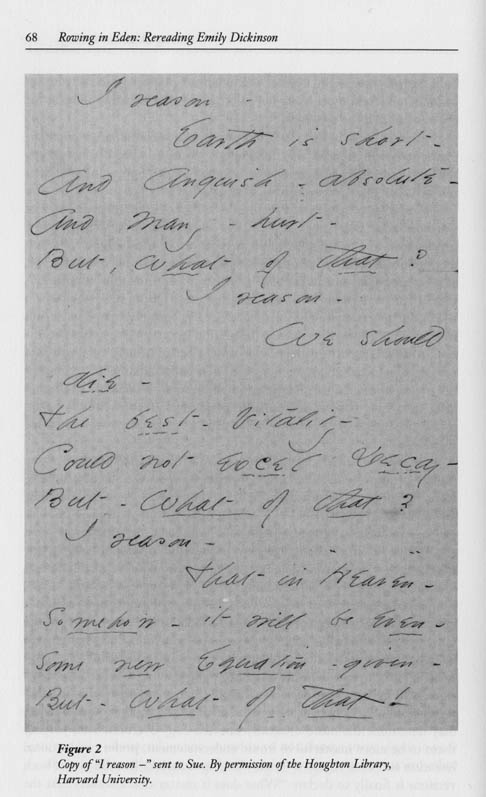 68 Rowing in Eden: Rereading Emily Dickinson
I reason -
Earth is short -
And Anguish - absolute -
And Many - hurt -
But, What of that?
I reason -
We should
die -
The best - Vitality -
Could not excel Decay -
But - What of that?
I reason -
that in Heaven -
Somehow - it will be Even -
Some new Equation - given -
But - What of that!
Figure 2
Copy of "I reason –" sent to Sue. By permission of the Houghton Library,
Harvard University.